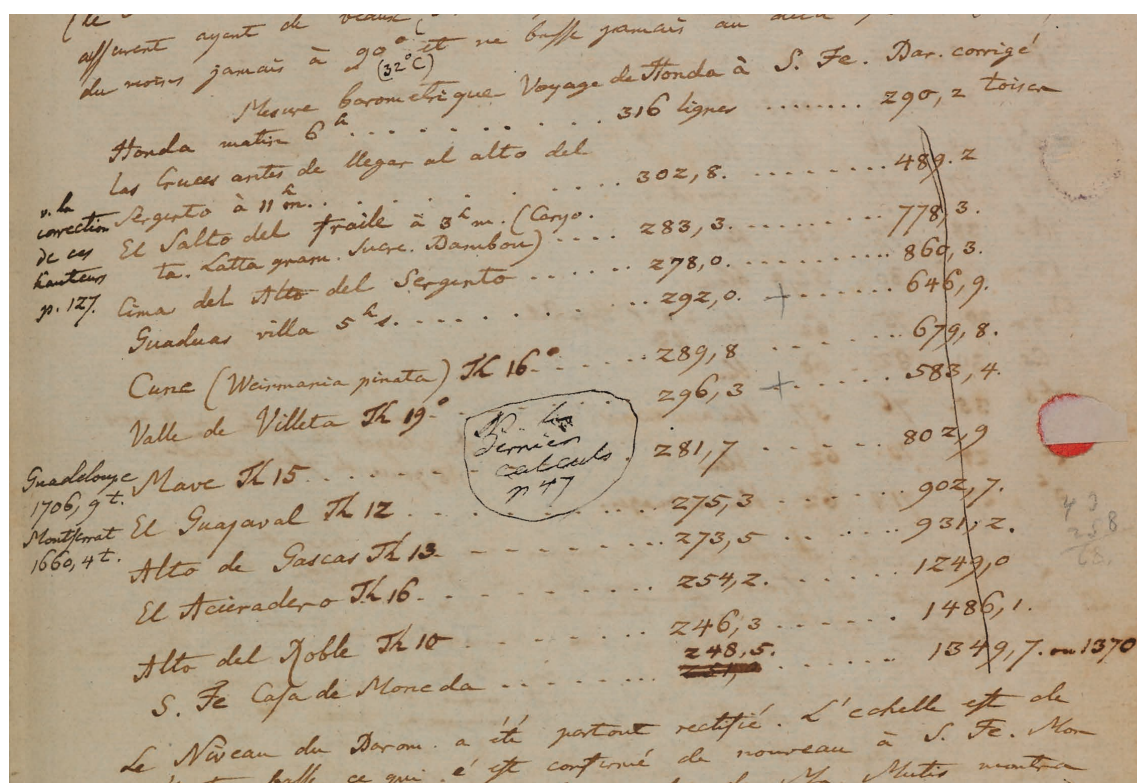 assurent ayant de
du moins jamais à 90° et ne baisse jamais au
(32°C)
Mesure barometrique Voyage de Honda à S. Fe. Bar. corrigé
Honda matin 6h . . . . . . . . . . 316 lignes . . . . . . . . 290,2 toises
Las Cruces antes de llegar al alto del
Sergento à 11h m. . . . . . . . . . 302,8. . . . . . . . . 489.2
El Salto del fraile à 3h m. (Caryo.
ta. Latta gram. Sucre. Bambou) . . . . 283,3. . . . . . . . . 778,3.
Cima del Alto del Sergento . . . . . . . 278,0. . . . . . . . . 860,3.
Guaduas villa 5h s. . . . . . . . 292,0. + . . . . . . . 646,9.
Cune (Weinmania pinata) Th 16° . . . . . . 289,8 . . . . . . . . 679,8.
Valle de Villeta Th 19° . . . . . . 296,3 + . . . . . . 583,4.
Mave Th 15 . . . . . . . . 281,7 . . . . . . . . 802,9
El Guayaval Th 12 . . . . . . . . 275,3 . . . . . . . . 902,7.
Alto de Gascas Th 13 . . . . . . . . 273,5 . . . . . . . . 931,2.
El Acieradero Th 16 . . . . . . . . 254,2. . . . . . . . 1249,0
Alto del Roble Th 10 . . . . . . . . 246,3 . . . . . . . . 1486,1.
S. Fe Casa de Moneda . . . . . . . . 248,5. . . . . . . . 1349,7. ou 1370
v. la
correction
de ces
hauteurs
p. 127.
Guadeloupe
1706,9 t.
Montserrat
1660,4 t.
v. les
derniers
calculs
p 47
Le Niveau du Barom. a été partout rectifié. L'echelle est de
ce qui s'est confirmé de nouveau à S. Fe. Mon
Mutis montra